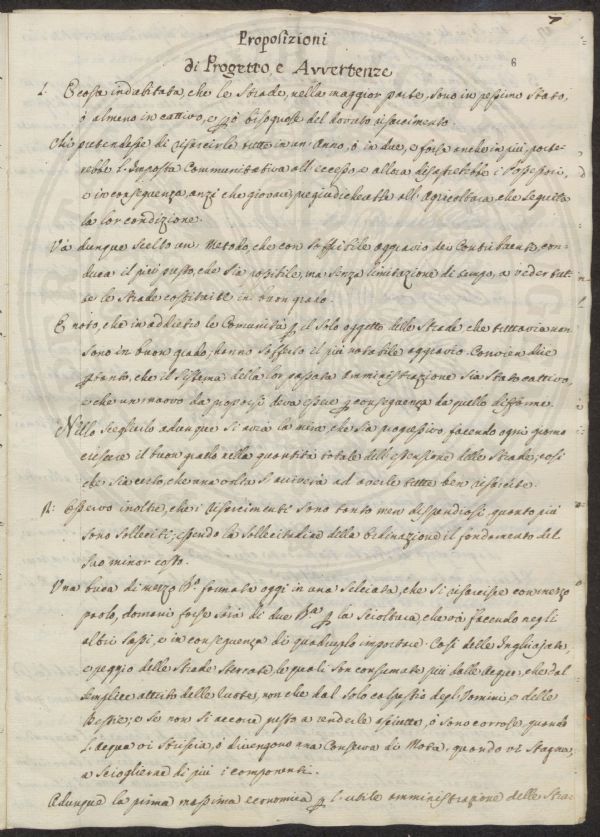 7
Proposizioni
di Progetto, e Avvertenze
6
1. E cosa indubitata, che le Strade, nella maggior parte, sono in pessimo stato,
o almeno in cattivo, e però bisognose del dovuto risarcimento.
Chi pretendesse di risarcirle tutte in un Anno, ò in due, e forse anche in più, porte-
rebbe l'Imposta Communitativa all'eccesso, e allora disastrerebbe i Possessori,
e in conseguenza, anzi che giovare, pregiudicherebbe all'Agricoltura, che seguita
la lor condizione.
Và dunque scelto un Metodo, che con soffribile aggravio dei Contribuenti, con-
duca il più presto, che sia possibile, ma senza limitazione di tempo, a veder tut-
te le Strade costituite in buon grado.
E noto, che in addietro le Comunità per il solo oggetto delle Strade che tuttavia non
sono in buon grado, hanno sofferto il più notabile aggravio. Convien dire
pertanto, che il sistema della lor passata Amministrazione sia stato cattivo,
e che un nuovo da proporsi deva essere per conseguenza da quello difforme.
Nello sceglierlo adunque si avrà la mira, che sia progressivo, facendo ogni giorno
crescere il buon grado nella quantità totale dell'estensione delle Strade, così
che sia certo, che una volta si arriverà ad averle tutte ben risarcite.
Osservo inoltre, che i risarcimenti sono tanto meno dispendiosi, quanto più
sono solleciti; essendo la sollecitudine della Ordinazione il fondamento del
suo minor costo.
Una buca di mezzo formata oggi in una Seleciata, che si risarcisce con mezzo
paolo, domani forse sarà di due per la scioltura, che và facendo negli
altri sassi, e in conseguenza di quadruplo importare. Così delle Inghiajate,
e peggio delle Strade Sterrate, le quali son consumate più dalle Acque, che dal
semplice attrito delle ruote, non che dal solo calpestio degl'Uomini, e delle
Bestie; e se non si accorre presto a renderle asciutte, ò sono corrose, quando
l'acqua vi striscia, ò divengono una Conserva di Mota, quando vi stagna,
a sciogliere di più i componenti.
Adunque la prima massima economica per l'utile amministrazione delle Stra-